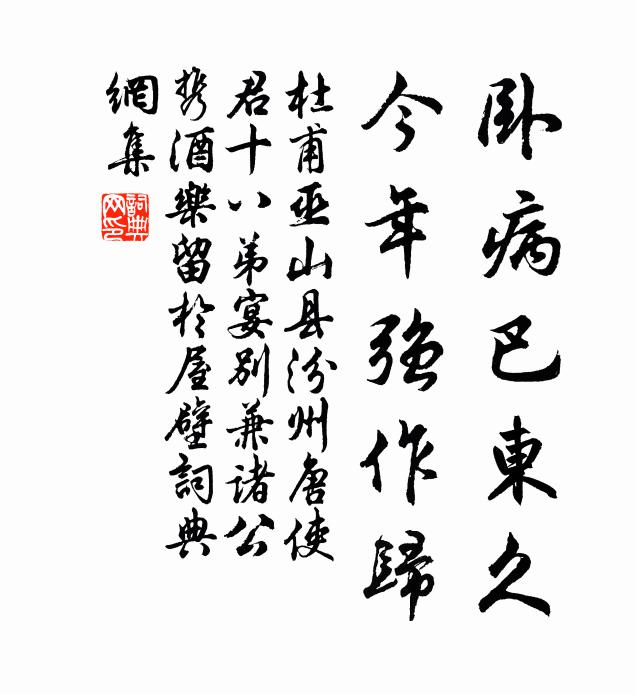 卧病巴東久
今年強作歸
杜甫巫山县汾州唐使
君十八弟宴別兼諸公
携酒樂留於屋壁詞典
網集
詞典
网印